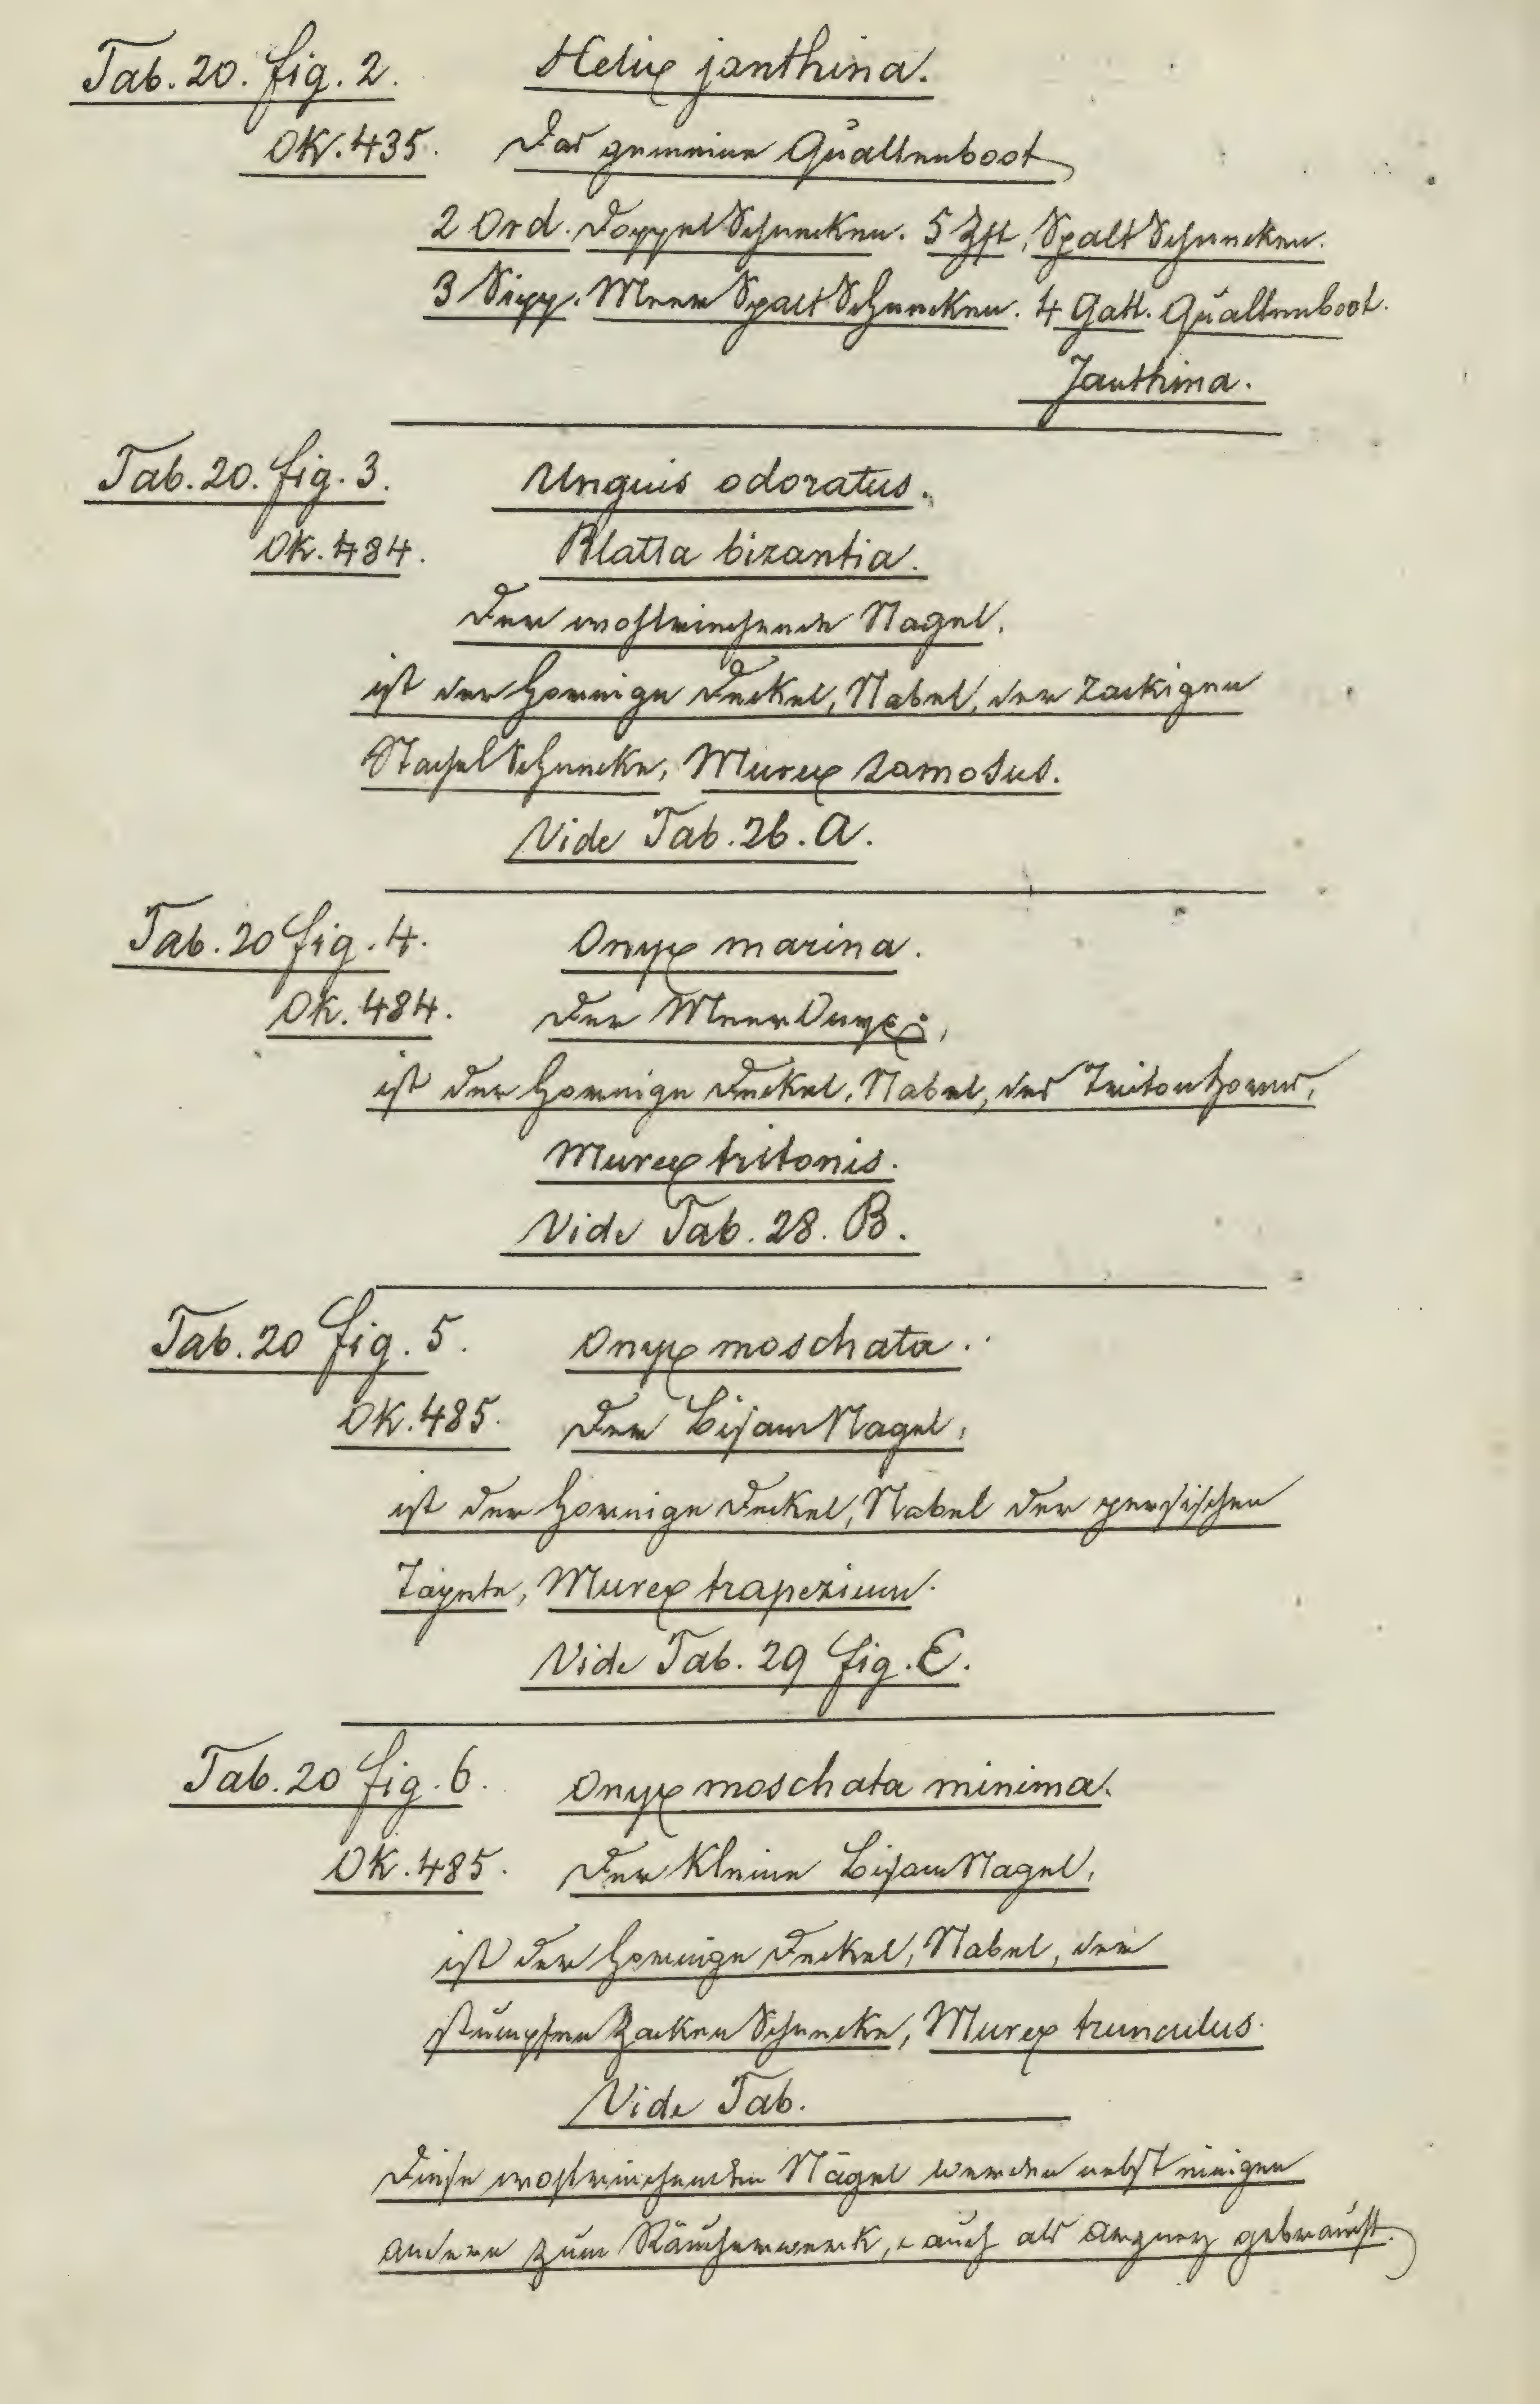 Tab. 20. fig. 2. Helix janthina.
OK. 435. Das gemeine Quallenboot
2 Ord. Doppel Schnecken. 5 Zft, Spalt Schnecken.
3 Sipp. Meer Spalt Schnecken. 4 Gatt. Quallenboot.
Janthina.
Tab. 20. fig. 3. Unguis odoratus.
OK. 484. Blatta bizantia.
Der wohlriechende Nagel.
ist der hornige Deckel, Nabel, der zackigen
Stachel Schnecke, Murex ramosus.
Vide Tab. 26. A.
Tab. 20 fig. 4. Onyx marina.
Ok. 484. Der Meer Onyx,
ist der hornige Deckel, Nabel, des Tritonhorns,
Murex tritonis.
Vide Tab. 28. B.
Tab. 20 fig. 5. Onyx moschata.
OK. 485. Der Bisam Nagel,
ist der hornige Deckel, Nabel der persischen
Tapete, Murex trapezium.
Vide Tab. 29 fig. E.
Tab. 20 fig. 6. Onyx moschata minima.
OK. 485. Der kleine Bisam Nagel,
ist der hornige Deckel, Nabel, der
stumpfen Zacken Schnecke, Murex trunculus.
Vide Tab.
Diese wohlriechenden Nägel werden nebst einigen
andern zum Räucherwerck, auch als Arzney gebraucht.